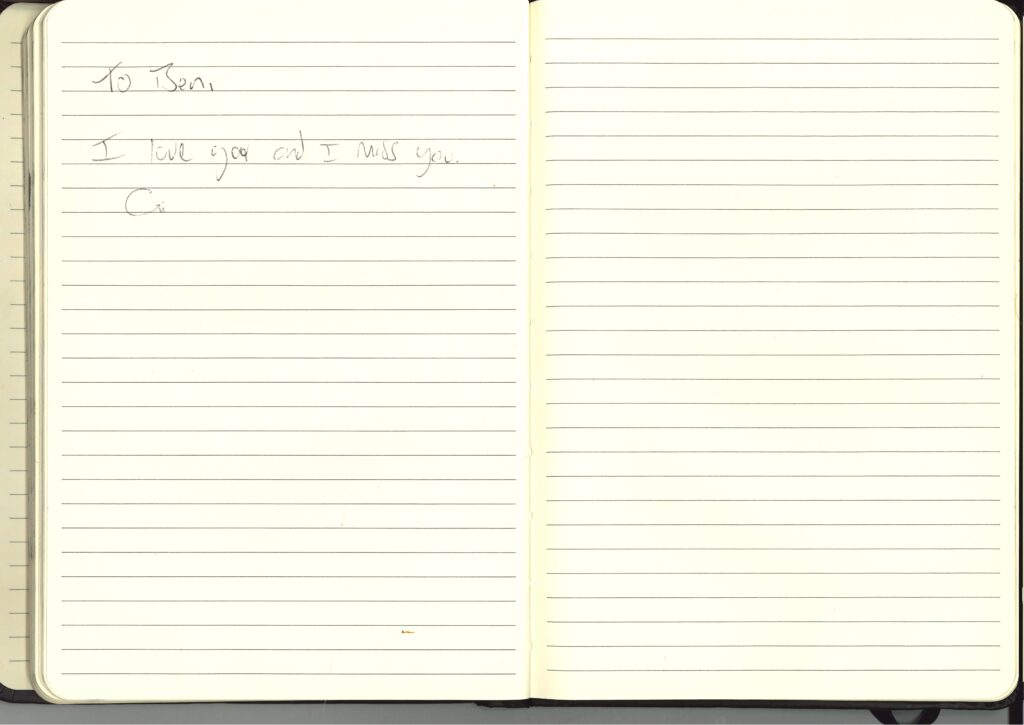 To Ben,
I love you and I miss you.